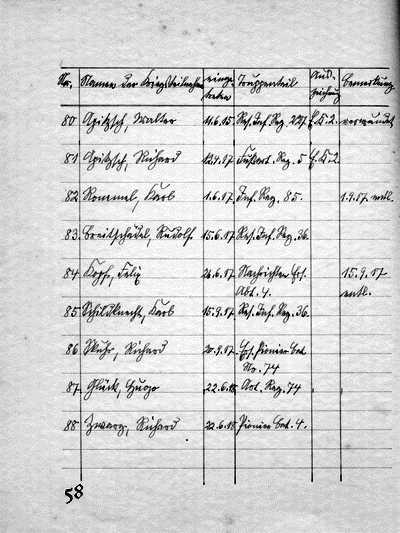 Nr. Namen der Kriegsteilnehmer einge- Truppenteil Aus- Bemerkung
treten zeichnung
80 Opitzsch, Walter 11.6.15 Res. Inf. Reg. 227. E.K.2. verwundet
81 Opitzsch, Richard 12.4.17 Fußart. Reg. 5 E.K.2.
82 Rommel, Karl 1.6.17 Inf. Reg. 85. 1.9.17 entl.
83. Breitschädel, Rudolf. 15.6.17 Res. Inf. Reg. 36.
84 Kopf, Felix 26.6.17 Nachrichten Ers. 15.9.17
Abt. 4. entl.
85 Schildknecht, Karl 15.9.17 Res. Inf. Reg. 36.
86 Richard 20.9.17. Ers. Pionier Bat.
No. 74
87. Glück, Hugo 22.6.18 Art. Reg. 74
88 Zwarg, Richard 22.6.18 Pionier Bat. 4.
58